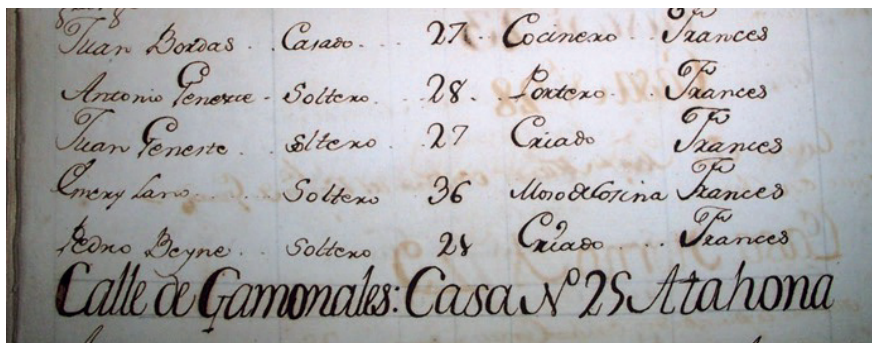 Juan Bordas . . Casado . . . 27 . Cocinero . . Frances
Antonio - Soltero . . 28 . Portero . . Frances
Juan . Soltero . 27 Criado Frances
Emery Soltero 36 Moso de Cosina Frances
Pedro Beyne . . Soltero 28 Criado . . . Frances
Calle de Gamonales: Casa Nº 25 Atahona